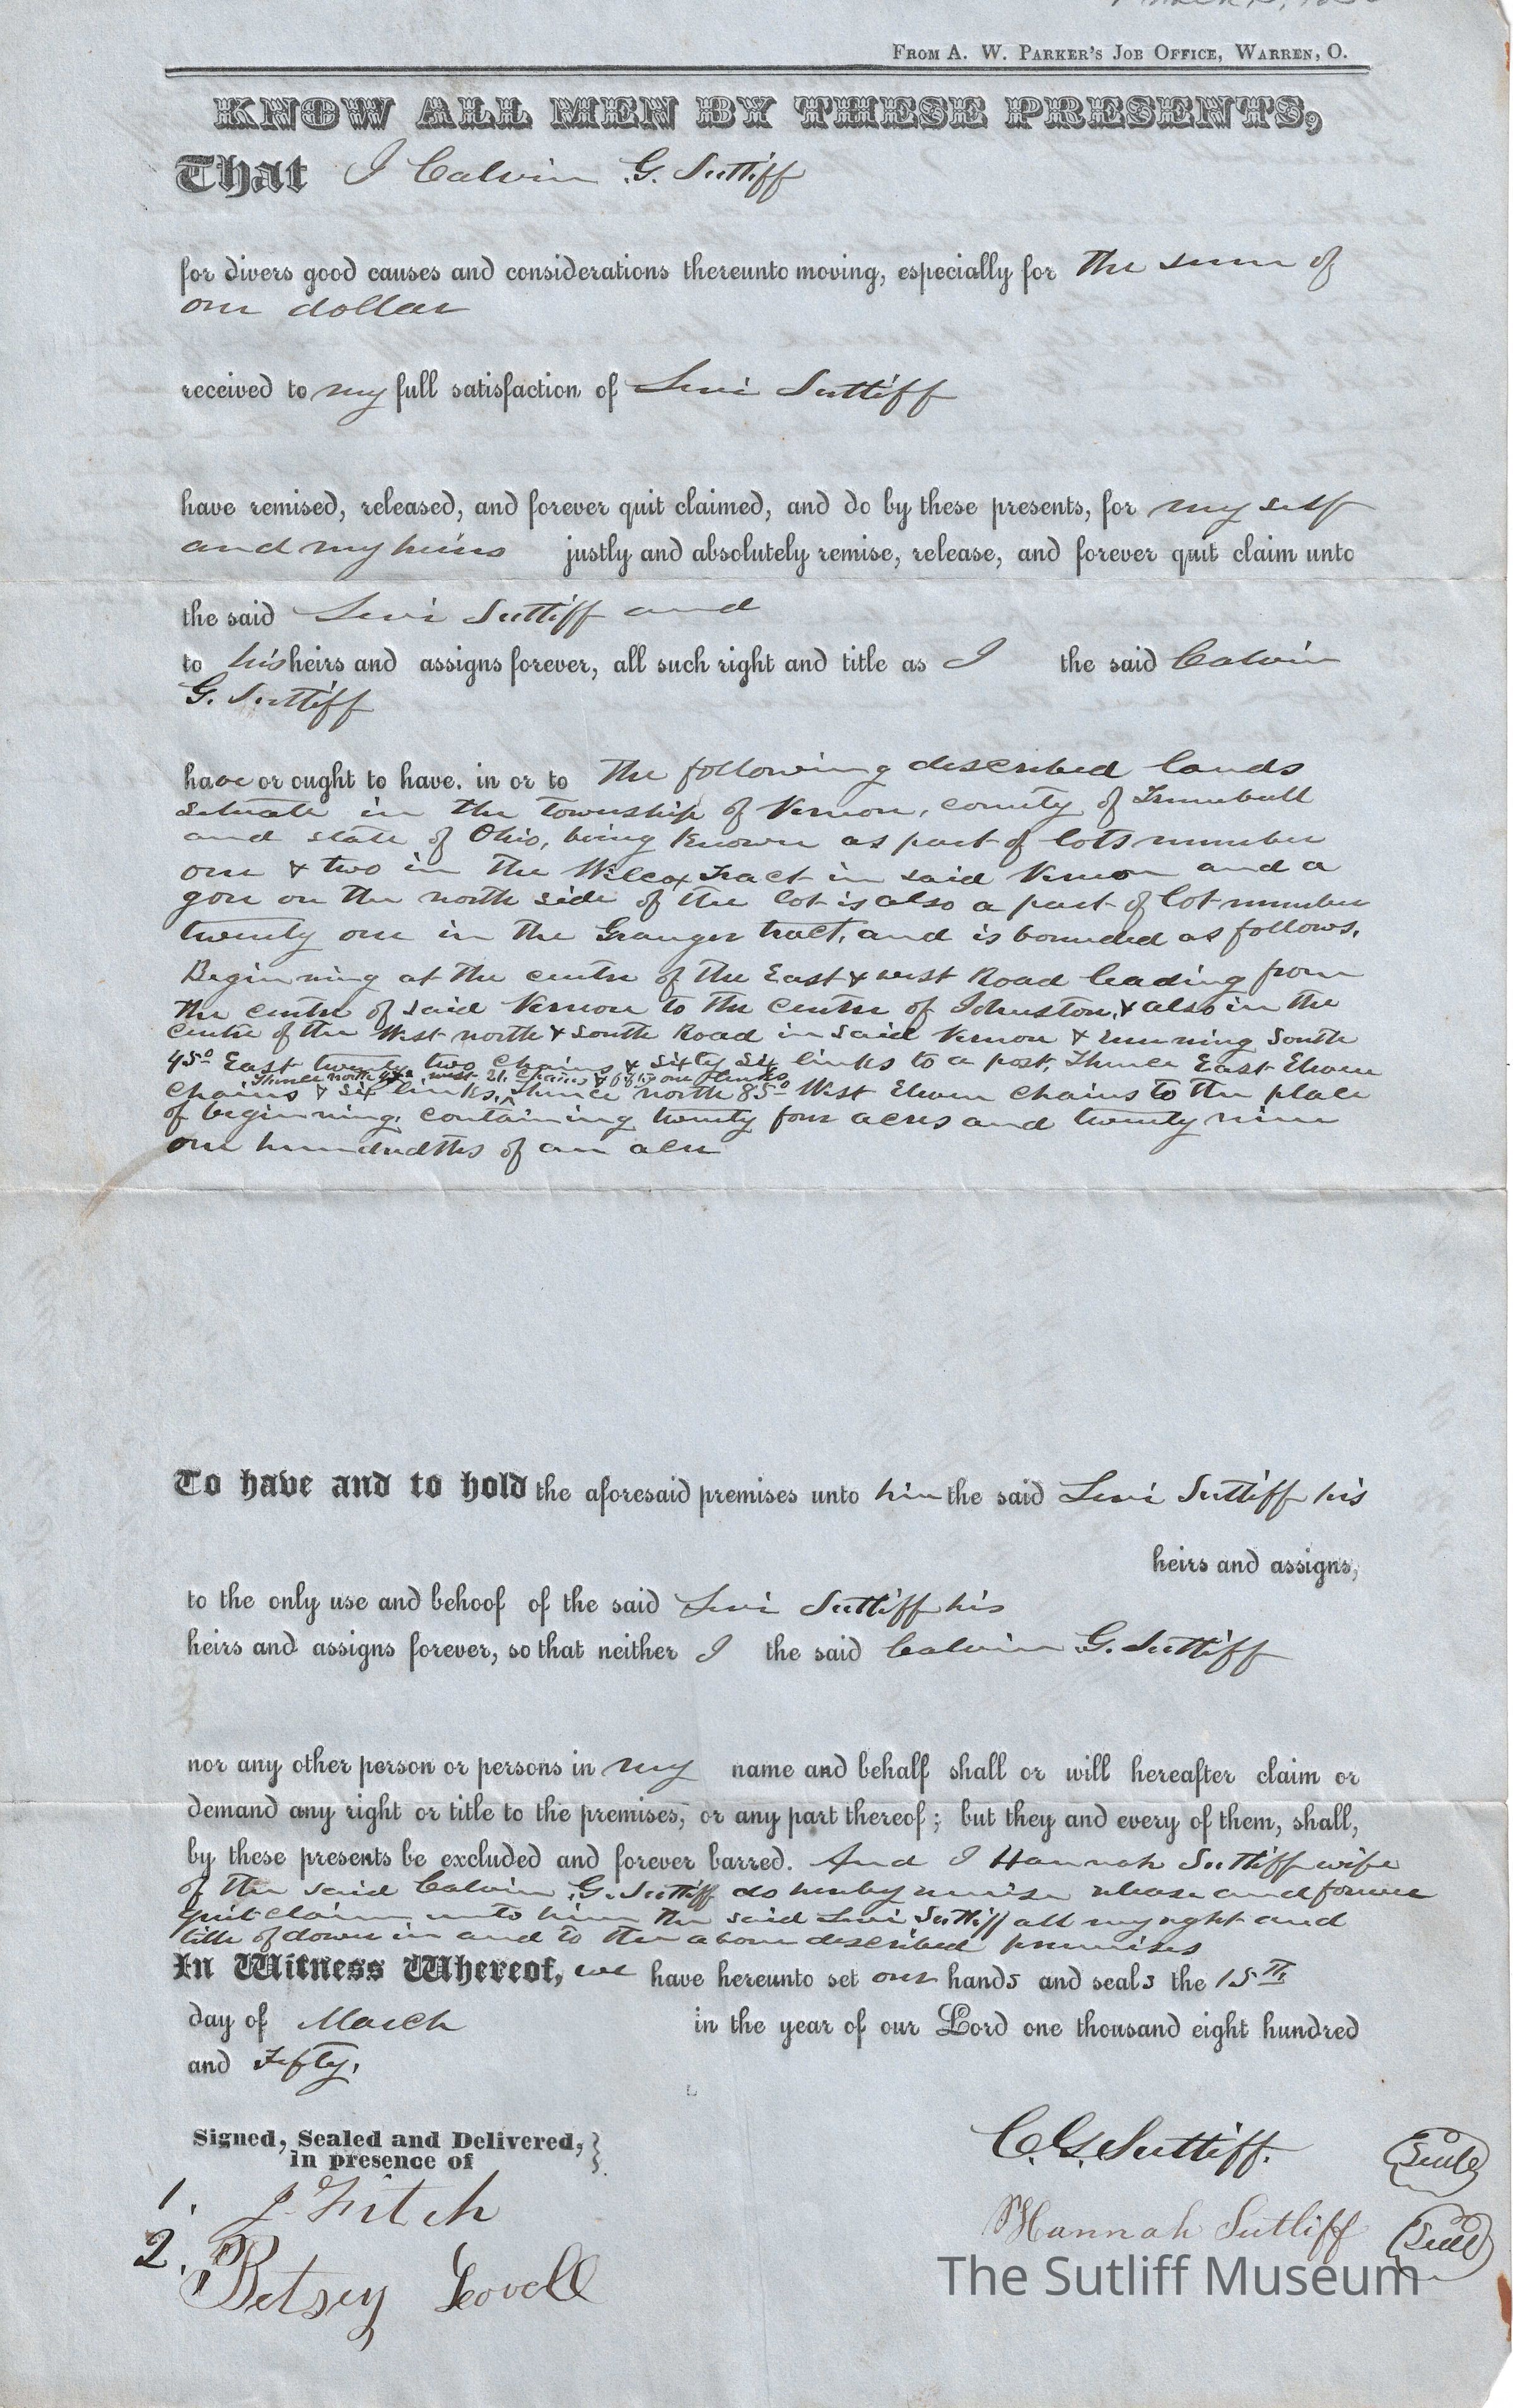 FROM A. W. PARKER'S JOB OFFICE, WARREN, O.
KNOW ALL MEN BY THESE PRESENTS,
That I Calvin G. Sutliff
for divers good causes and considerations thereunto moving, especially for the sum of
one dollar
received to my full satisfaction of Levi Sutliff
have remised, released, and forever quit claimed, and do by these presents, for my self
and my heirs justly and absolutely remise, release, and forever quit claim unto
the said Levi Sutliff and
to his heirs and assigns forever, all such right and title as I the said Calvin
G. Sutliff
have or ought to have. in or to the following described lands
situate in the township of Vernon, county of Trumbull
and state of Ohio, being known as part of lots number
one & two in the Wilcox Tract in said Vernon and a
gore on the north side of the lot is also a part of lot number
twenty one in the Granger tract, and is bounded as follows.
Beginning at the centre of the East & west Road leading from
the centre of said Vernon to the centre of Johnston, & also in the
centre of the West north & south Road in said Vernon & running South
45° East twenty two chains & sixty six links to a post, Thence East Eleven
Thence north west 21 chains & one links
chains & six links, ^ thence north 85° West Eleven chains to the place
of beginning. containing twenty four acres and twenty nine
one hundredths of an acre
To have and to hold the aforesaid premises unto him the said Levi Sutliff his
heirs and assigns,
to the only use and behoof of the said Levi Sutliff his
heirs and assigns forever, so that neither I the said Calvin G. Sutliff
nor any other person or persons in my name and behalf shall or will hereafter claim or
demand any right or title to the premises, or any part thereof; but they and every of them, shall,
by these presents be excluded and forever barred. And I Hannah Sutliff wife
of the said Calvin G. Sutliff do hereby remise release and forever
quit claim unto him the said Levi Sutliff all my right and
title of dower in and to the above described premises
In Witness Whereof, we have hereunto set our hands and seals the 15th
day of March in the year of our Lord one thousand eight hundred
and Fifty.
Signed, Sealed and Delivered, }
in presence of
C. G. Sutliff. Seal
1. J. Fitch
Hannah Sutliff Seal
2. Betsey Lovell
The Sutliff Museum